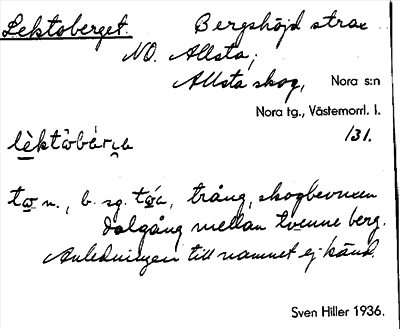 Lektoberget. Bergshöjd strax
NO. Allsta;
Allsta skog, Nora s:n
Nora tg., Västernorrl. l.
131.
to n., b. sg. trång, skogbevuxen
dalgång mellan tvenne berg.
Anledningen till namnet ej känd.
Sven Hiller 1936.